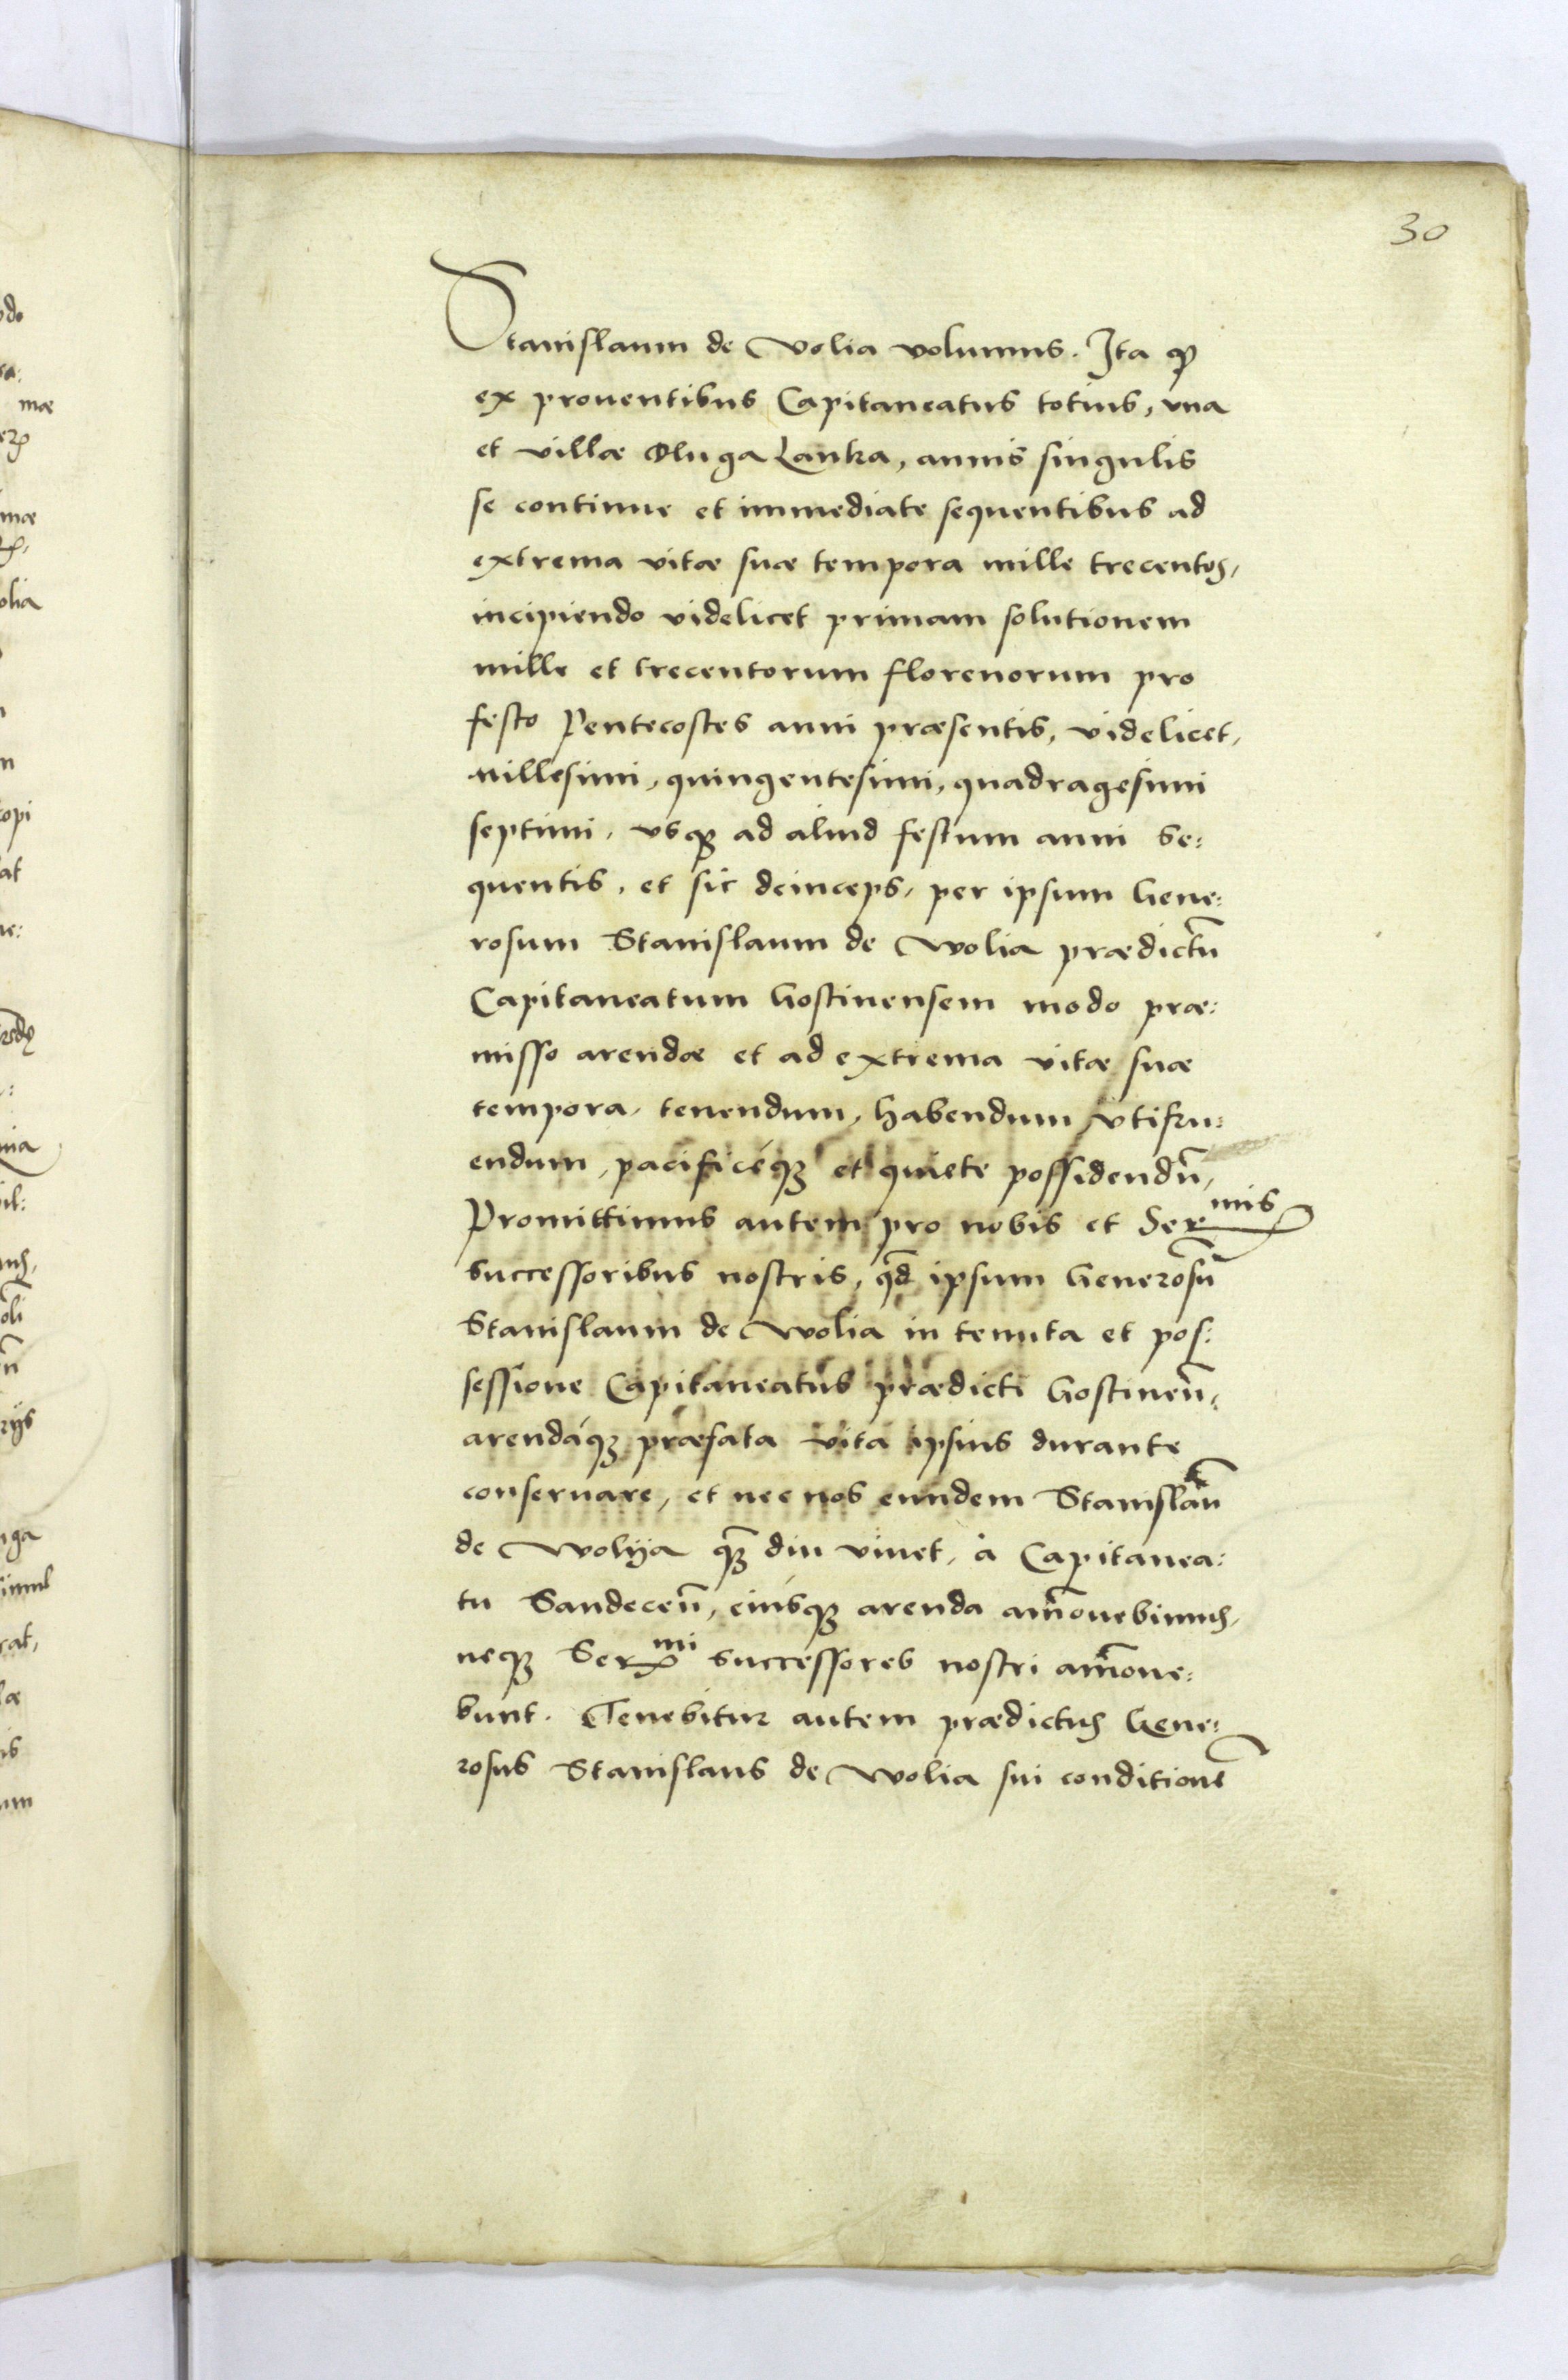 30
Stanislaum de Volia volumus. Ita ꝙ
ex prouentibus Capitaneatus totius, vna
et villæ Dluga Lanka, annis singulis
se continue et immediate sequentibus ad
extrema vitæ suæ tempora mille trecentos,
incipiendo videlicet primam solutionem
mille et trecentorum florenorum pro
festo Pentecostes anni præsentis, videlicet,
millesimi, quingentesimi, quadragesimi
septimi, vsqꝫ ad aliud festum anni se:
quentis, et sic deinceps, per ipsum Gene:
rosum Stanislaum de Wolia prædictũ
Capitaneatum Gostinensem modo præ:
misso arendæ et ad extrema vitæ suæ
tempora, tenendum, habendum vtifru:
endum, pacificéqꝫ et quiete possidendũ,
Promittimus autem pro nobis et Ser mis
successoribus nostris, qd̃ ipsum Generosũ
Stanislaum de Wolia in tenuta et pos:
sessione Capitaneatus prædicti Gostineñ,
arendáqꝫ præfata vita ipsius durante
conseruare, et nec nos eundem Stanislaũ
de Woliya qꝫ̃ diu viuet, à Capitanea:
tu Sandeceñ, eiúsqꝫ arenda am̃ouebimus,
neqꝫ Ser mi successores nostri am̃oue:
bunt. Tenebitur autem prædictus Gene:
rosus Stanislaus de Wolia sui conditionẽ
do
mæ
olia
opi
at
rijs
nga
rat,
is
um